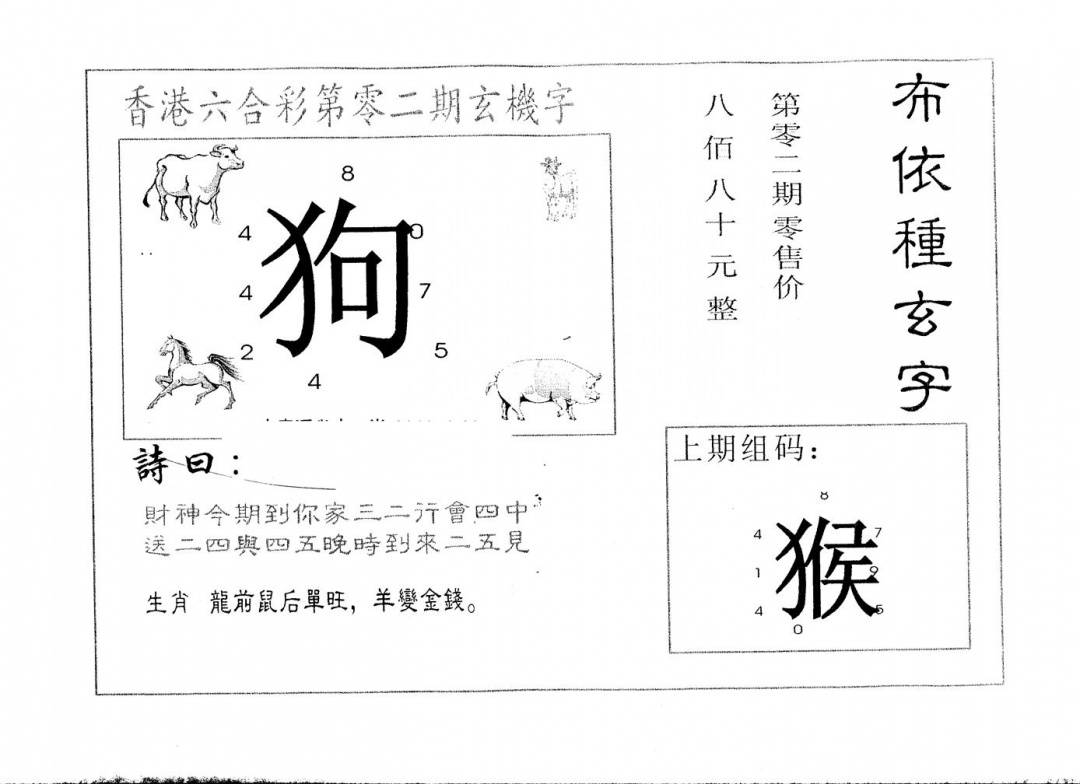 香港六合彩第零二期玄機字
8
4
0
狗
4
7
2
5
4
詩曰：
財神今期到你家三二行會四中
送二四與四五晚時到來二五見
生肖 龍前鼠后單旺，羊變金錢。
布依種玄字
第零二期零售价
八佰八十元整
上期组码：
8
4
7
猴
1
9
4
5
0